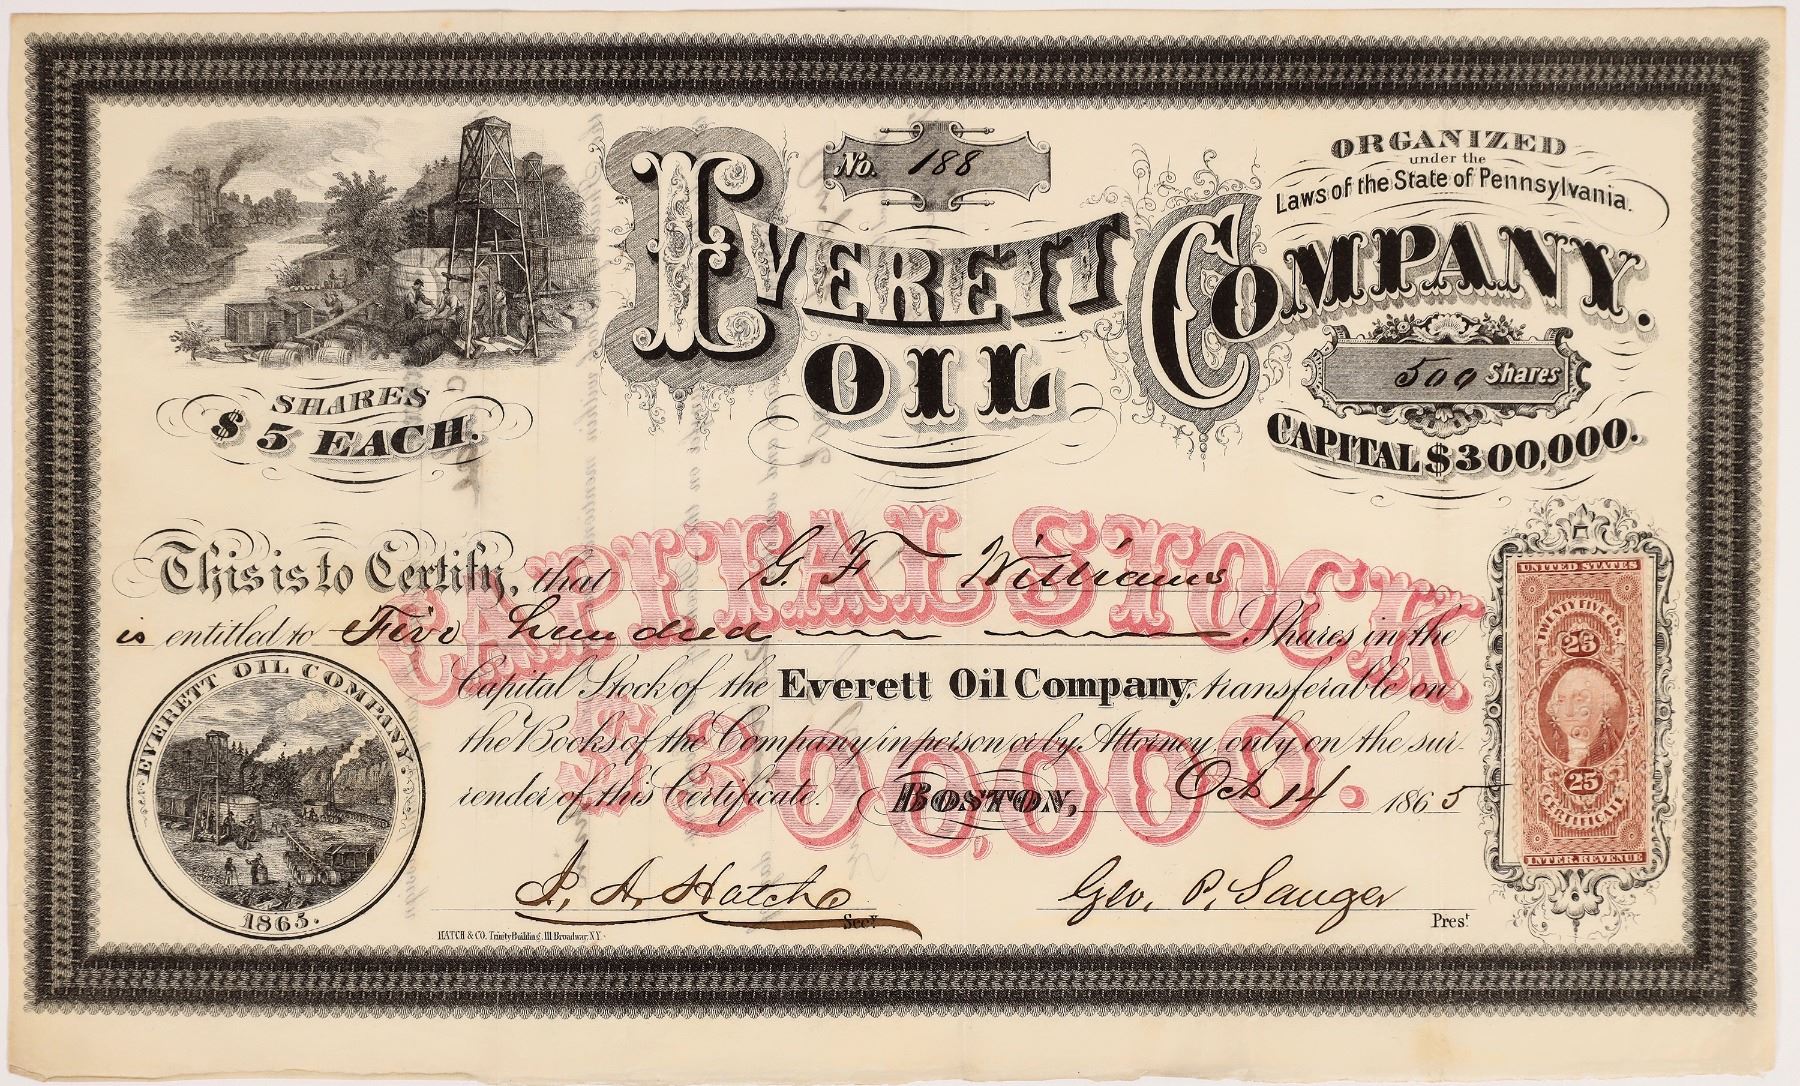 No. 188
ORGANIZED
under the
Laws of the State of Pennsylvania.
EVERETT
OIL
COMPANY.
500 Shares
CAPITAL $300,000.
SHARES
$5 EACH.
CAPITAL STOCK
$300,000.
This is to Certify, that G. F. Williams
is entitled to Five hundred Shares in the
Capital Stock of the Everett Oil Company, transferable on
the Books of the Company in person or by Attorney only on the sur-
render of this Certificate. BOSTON, Oct 14 1865
EVERETT OIL COMPANY.
1865.
UNITED STATES
TWENTY FIVE CTS.
25
25
CERTIFICATE
INTER. REVENUE
Secy.
Geo. P. Sanger Prest
HATCH & CO. Trinity Building, 111 Broadway, N.Y.